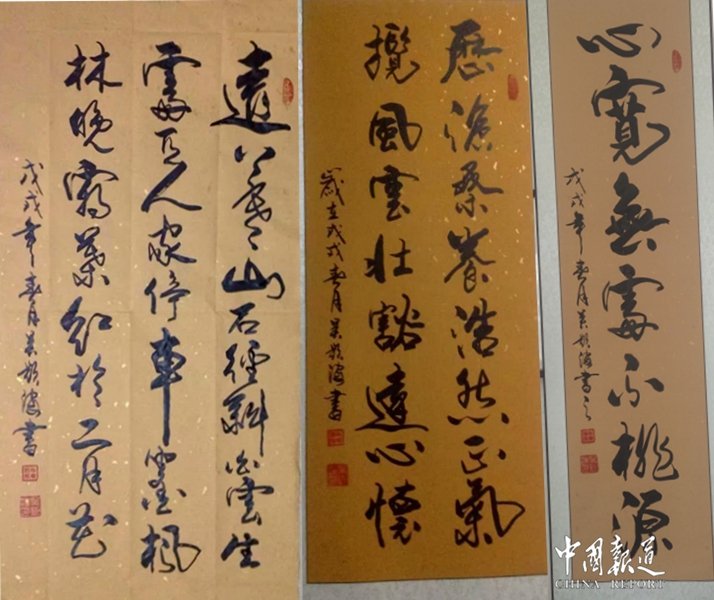 遠上寒山石徑斜白雲生
處有人家停車坐愛楓
林晚霜葉紅於二月花
戊戌年春月吴書
歷滄桑養浩然正氣
攬風雲壯豁達心懷
歲在戊戌春月吴書
心寬無處不桃源
戊戌年春月吴書之
中國報道
CHINA REPORT